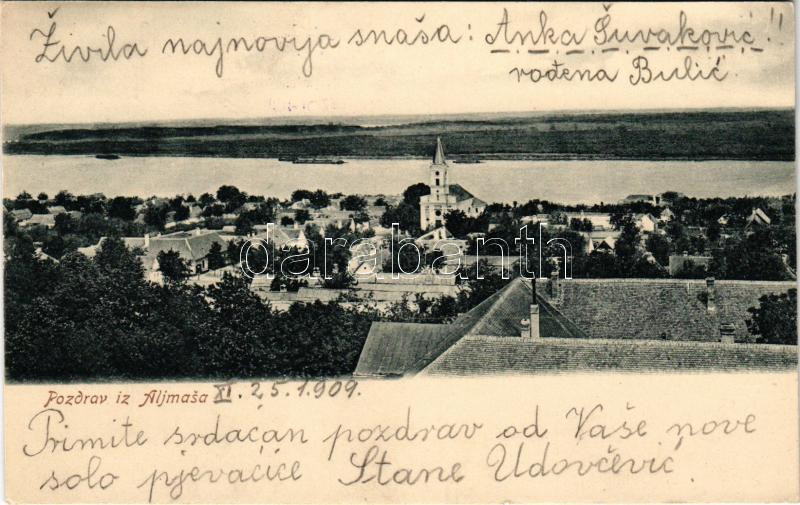 Živila najnovija snaša: Anka Šuvaković!!
rođena Bulić.
darabanth
Pozdrav iz Aljmaša XI. 25. 1909.
Primite srdačan pozdrav od Vaše nove
solo pjevačice Stane Udovčević.